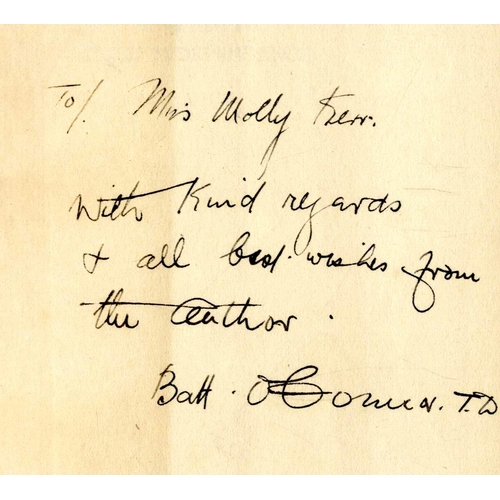 To/. Miss Molly Kerr.
With Kind regards
& all best wishes from
the Author.
Batt. O'Connor. T.D